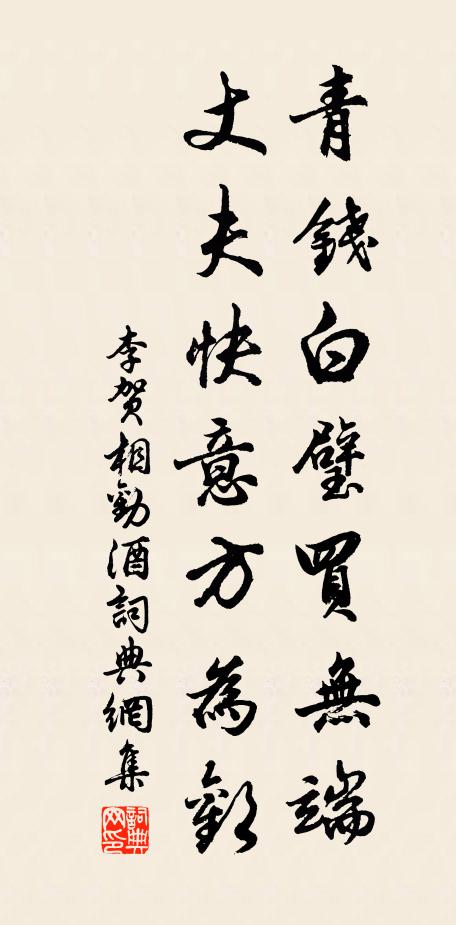 青錢白璧買無端
丈夫快意方為歡
李賀相勸酒詞典網集
詞典网印